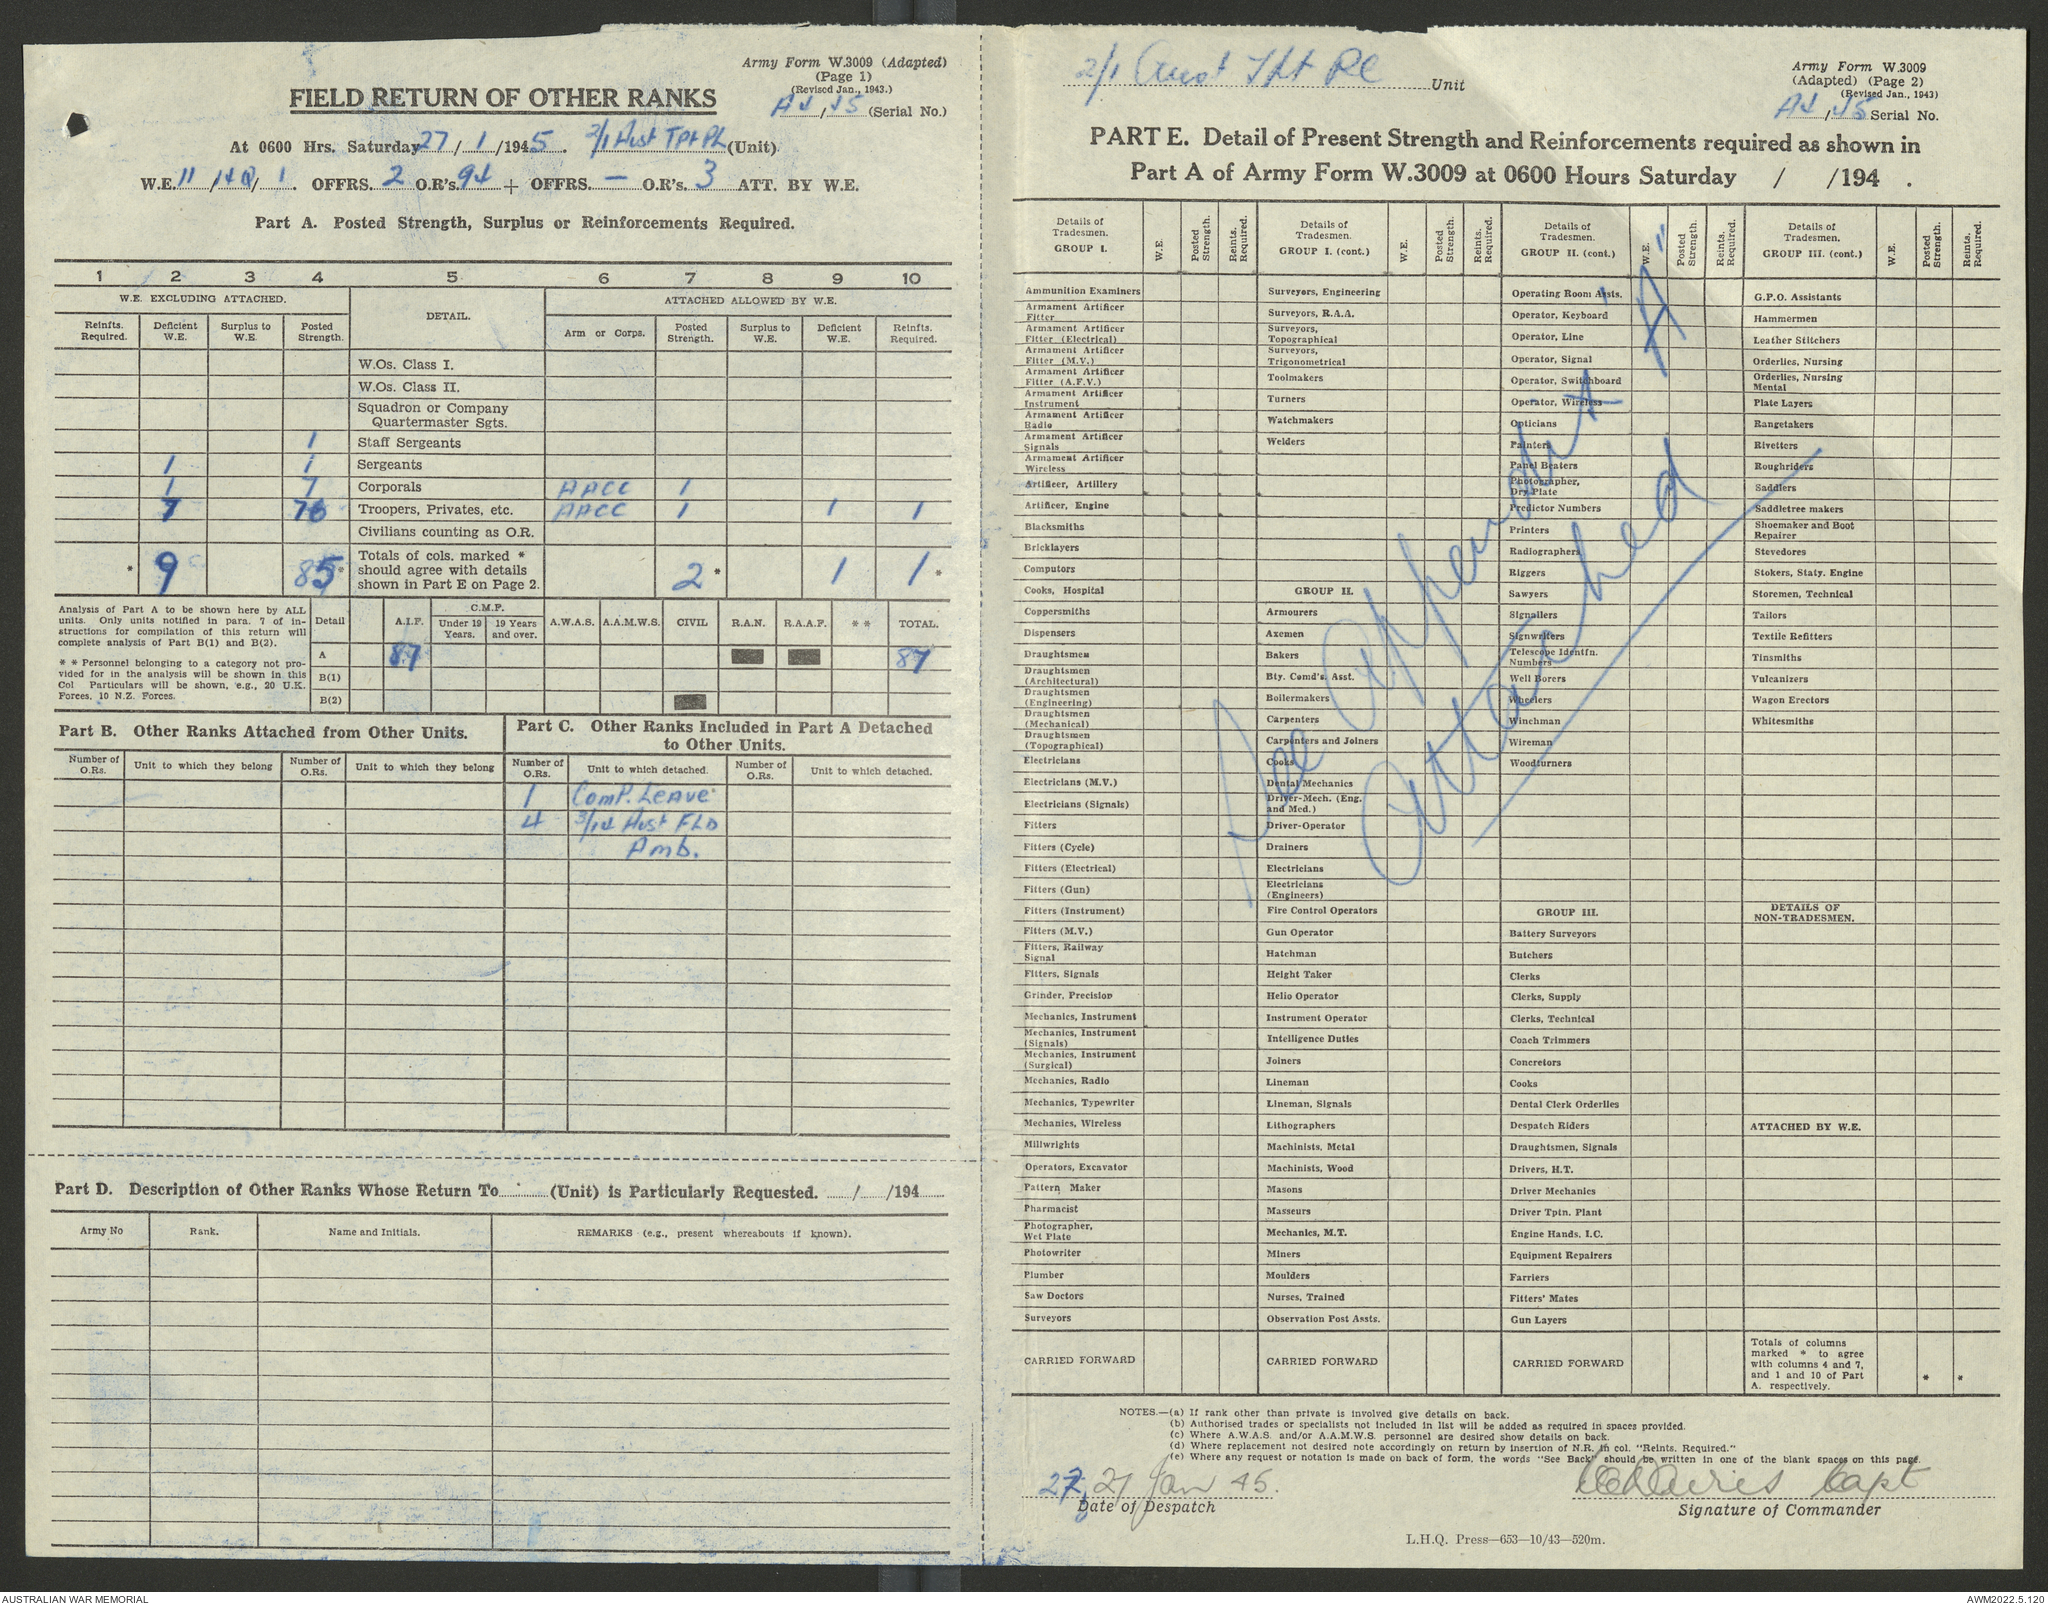 Army Form W.3009 (Adapted)
(Page 1)
(Revised Jan., 1943.)
FIELD RETURN OF OTHER RANKS
A4/45 (Serial No.)
At 0600 Hrs. Saturday 27/1/1945. 2/1 Aust Tpt Pl (Unit)
W.E. 11/4Q/1. OFFRS. 2 O.R's. 94 + OFFRS. — O.R's. 3 ATT. BY W.E.
Part A. Posted Strength, Surplus or Reinforcements Required.
1 2 3 4 5 6 7 8 9 10
W.E. EXCLUDING ATTACHED. DETAIL. ATTACHED ALLOWED BY W.E.
Reinfts. Required. Deficient W.E. Surplus to W.E. Posted Strength. Arm or Corps. Posted Strength. Surplus to W.E. Deficient W.E. Reinfts. Required.
W.Os. Class I.
W.Os. Class II.
Squadron or Company
Quartermaster Sgts.
1 Staff Sergeants
1 1 Sergeants
1 7 Corporals AACC 1
7 76 Troopers, Privates, etc. AACC 1 1 1
Civilians counting as O.R.
* 9 85* Totals of cols. marked * should agree with details shown in Part E on Page 2. 2* 1 1*
Analysis of Part A to be shown here by ALL
units. Only units notified in para. 7 of in-
structions for compilation of this return will
complete analysis of Part B(1) and B(2).
* * Personnel belonging to a category not pro-
vided for in the analysis will be shown in this
Col Particulars will be shown, e.g., 20 U.K.
Forces, 10 N.Z. Forces.
Detail A.I.F. C.M.F. Under 19 Years. 19 Years and over. A.W.A.S. A.A.M.W.S. CIVIL R.A.N. R.A.A.F. * * TOTAL.
A 87 87
B(1)
B(2)
Part B. Other Ranks Attached from Other Units.
Number of O.Rs. Unit to which they belong Number of O.Rs. Unit to which they belong
Part C. Other Ranks Included in Part A Detached
to Other Units.
Number of O.Rs. Unit to which detached. Number of O.Rs. Unit to which detached.
1 Comp. Leave
4 3/14 Aust FLD
Amb.
Part D. Description of Other Ranks Whose Return To (Unit) is Particularly Requested. / /194
Army No Rank. Name and Initials. REMARKS (e.g., present whereabouts if known).
2/1 Aust Tpt Pl Unit
Army Form W.3009
(Adapted) (Page 2)
(Revised Jan., 1943)
A4/45 Serial No.
PART E. Detail of Present Strength and Reinforcements required as shown in
Part A of Army Form W.3009 at 0600 Hours Saturday / /194 .
Details of Tradesmen. GROUP I. W.E. Posted Strength. Reints. Required.
Ammunition Examiners
Armament Artificer Fitter
Armament Artificer Fitter (Electrical)
Armament Artificer Fitter (M.V.)
Armament Artificer Fitter (A.F.V.)
Armament Artificer Instrument
Armament Artificer Radio
Armament Artificer Signals
Armament Artificer Wireless
Artificer, Artillery
Artificer, Engine
Blacksmiths
Bricklayers
Computors
Cooks, Hospital
Coppersmiths
Dispensers
Draughtsmen
Draughtsmen (Architectural)
Draughtsmen (Engineering)
Draughtsmen (Mechanical)
Draughtsmen (Topographical)
Electricians
Electricians (M.V.)
Electricians (Signals)
Fitters
Fitters (Cycle)
Fitters (Electrical)
Fitters (Gun)
Fitters (Instrument)
Fitters (M.V.)
Fitters, Railway Signal
Fitters, Signals
Grinder, Precision
Mechanics, Instrument
Mechanics, Instrument (Signals)
Mechanics, Instrument (Surgical)
Mechanics, Radio
Mechanics, Typewriter
Mechanics, Wireless
Millwrights
Operators, Excavator
Pattern Maker
Pharmacist
Photographer, Wet Plate
Photowriter
Plumber
Saw Doctors
Surveyors
CARRIED FORWARD
Details of Tradesmen. GROUP I. (cont.) W.E. Posted Strength. Reints. Required.
Surveyors, Engineering
Surveyors, R.A.A.
Surveyors, Topographical
Surveyors, Trigonometrical
Toolmakers
Turners
Watchmakers
Welders
GROUP II.
Armourers
Axemen
Bakers
Bty. Comd's. Asst.
Boilermakers
Carpenters
Carpenters and Joiners
Cooks
Dental Mechanics
Driver-Mech. (Eng. and Med.)
Driver-Operator
Drainers
Electricians
Electricians (Engineers)
Fire Control Operators
Gun Operator
Hatchman
Height Taker
Helio Operator
Instrument Operator
Intelligence Duties
Joiners
Lineman
Lineman, Signals
Lithographers
Machinists, Metal
Machinists, Wood
Masons
Masseurs
Mechanics, M.T.
Miners
Moulders
Nurses, Trained
Observation Post Assts.
CARRIED FORWARD
Details of Tradesmen. GROUP II. (cont.) W.E. Posted Strength. Reints. Required.
Operating Room Assts.
Operator, Keyboard
Operator, Line
Operator, Signal
Operator, Switchboard
Operator, Wireless
Opticians
Painters
Panel Beaters
Photographer, Dry Plate
Predictor Numbers
Printers
Radiographers
Riggers
Sawyers
Signallers
Signwriters
Telescope Identfn. Numbers
Well Borers
Wheelers
Winchman
Wireman
Woodturners
GROUP III.
Battery Surveyors
Butchers
Clerks
Clerks, Supply
Clerks, Technical
Coach Trimmers
Concretors
Cooks
Dental Clerk Orderlies
Despatch Riders
Draughtsmen, Signals
Drivers, H.T.
Driver Mechanics
Driver Tptn. Plant
Engine Hands, I.C.
Equipment Repairers
Farriers
Fitters' Mates
Gun Layers
CARRIED FORWARD
Details of Tradesmen. GROUP III. (cont.) W.E. Posted Strength. Reints. Required.
G.P.O. Assistants
Hammermen
Leather Stitchers
Orderlies, Nursing
Orderlies, Nursing Mental
Plate Layers
Rangetakers
Rivetters
Roughriders
Saddlers
Saddletree makers
Shoemaker and Boot Repairer
Stevedores
Stokers, Staty. Engine
Storemen, Technical
Tailors
Textile Refitters
Tinsmiths
Vulcanizers
Wagon Erectors
Whitesmiths
DETAILS OF NON-TRADESMEN.
ATTACHED BY W.E.
Totals of columns
marked * to agree
with columns 4 and 7,
and 1 and 10 of Part
A. respectively. * *
See Appendix "A"
Attached
NOTES.—(a) If rank other than private is involved give details on back.
(b) Authorised trades or specialists not included in list will be added as required in spaces provided.
(c) Where A.W.A.S. and/or A.A.M.W.S. personnel are desired show details on back.
(d) Where replacement not desired note accordingly on return by insertion of N.R. in col. "Reints. Required."
(e) Where any request or notation is made on back of form, the words "See Back" should be written in one of the blank spaces on this page.
27, 27 Jan 45.
Capt
Date of Despatch
Signature of Commander
L.H.Q. Press—653—10/43—520m.
AUSTRALIAN WAR MEMORIAL
AWM2022.5.120